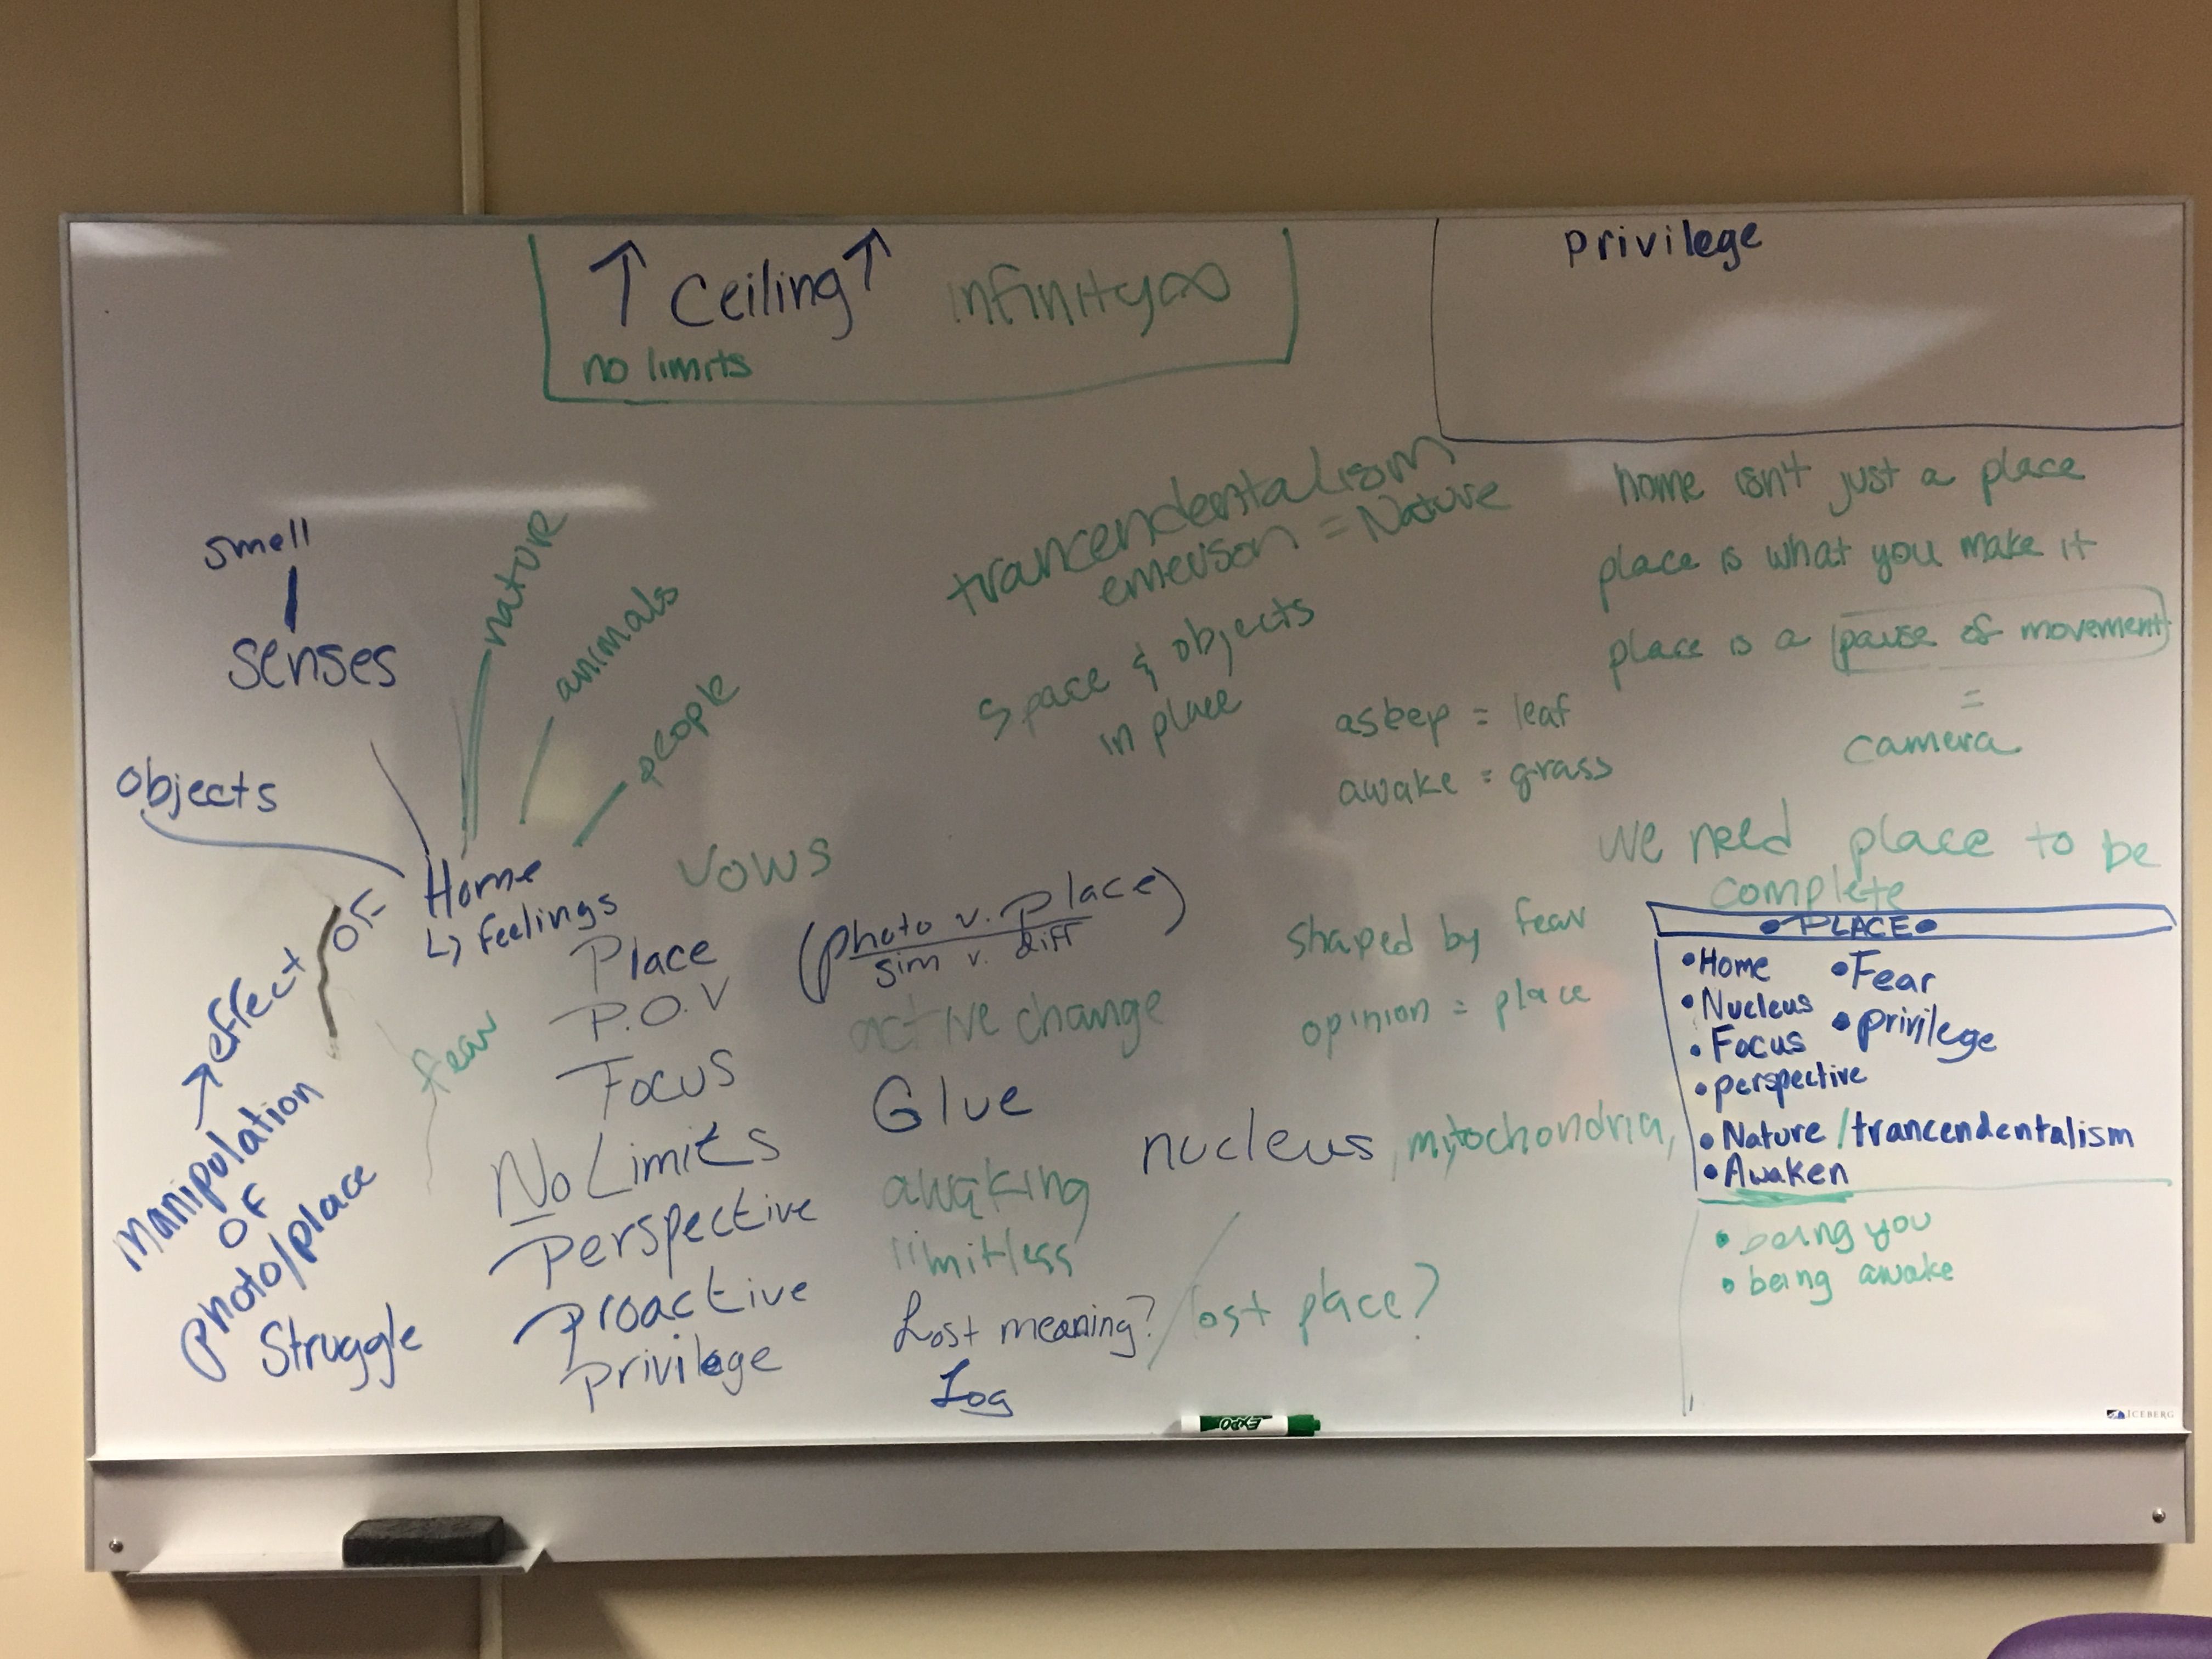 ↑ Ceiling ↑ infinity ∞
no limits
privilege
smell
senses
objects
nature
animals
people
Home
↳ Feelings
vows
trancendentalism
emerson = Nature
space & objects
in place
asleep = leaf
awake = grass
home isn't just a place
place is what you make it
place is a pause of movement
=
camera
we need place to be
complete
Manipulation
OF
Photo/place
→ effect OF
Struggle
fear
Place
P.O.V
Focus
No Limits
Perspective
Proactive
Privilege
(photo v. Place)
sim v. diff
active change
Glue
awaking
limitless
Lost meaning? / lost place?
Log
nucleus, mitochondria,
shaped by fear
opinion = place
• PLACE •
• Home
• Nucleus
• Focus
• perspective
• Nature / trancendentalism
• Awaken
• Fear
• privilege
• being you
• being awake
EXPO
ICEBERG